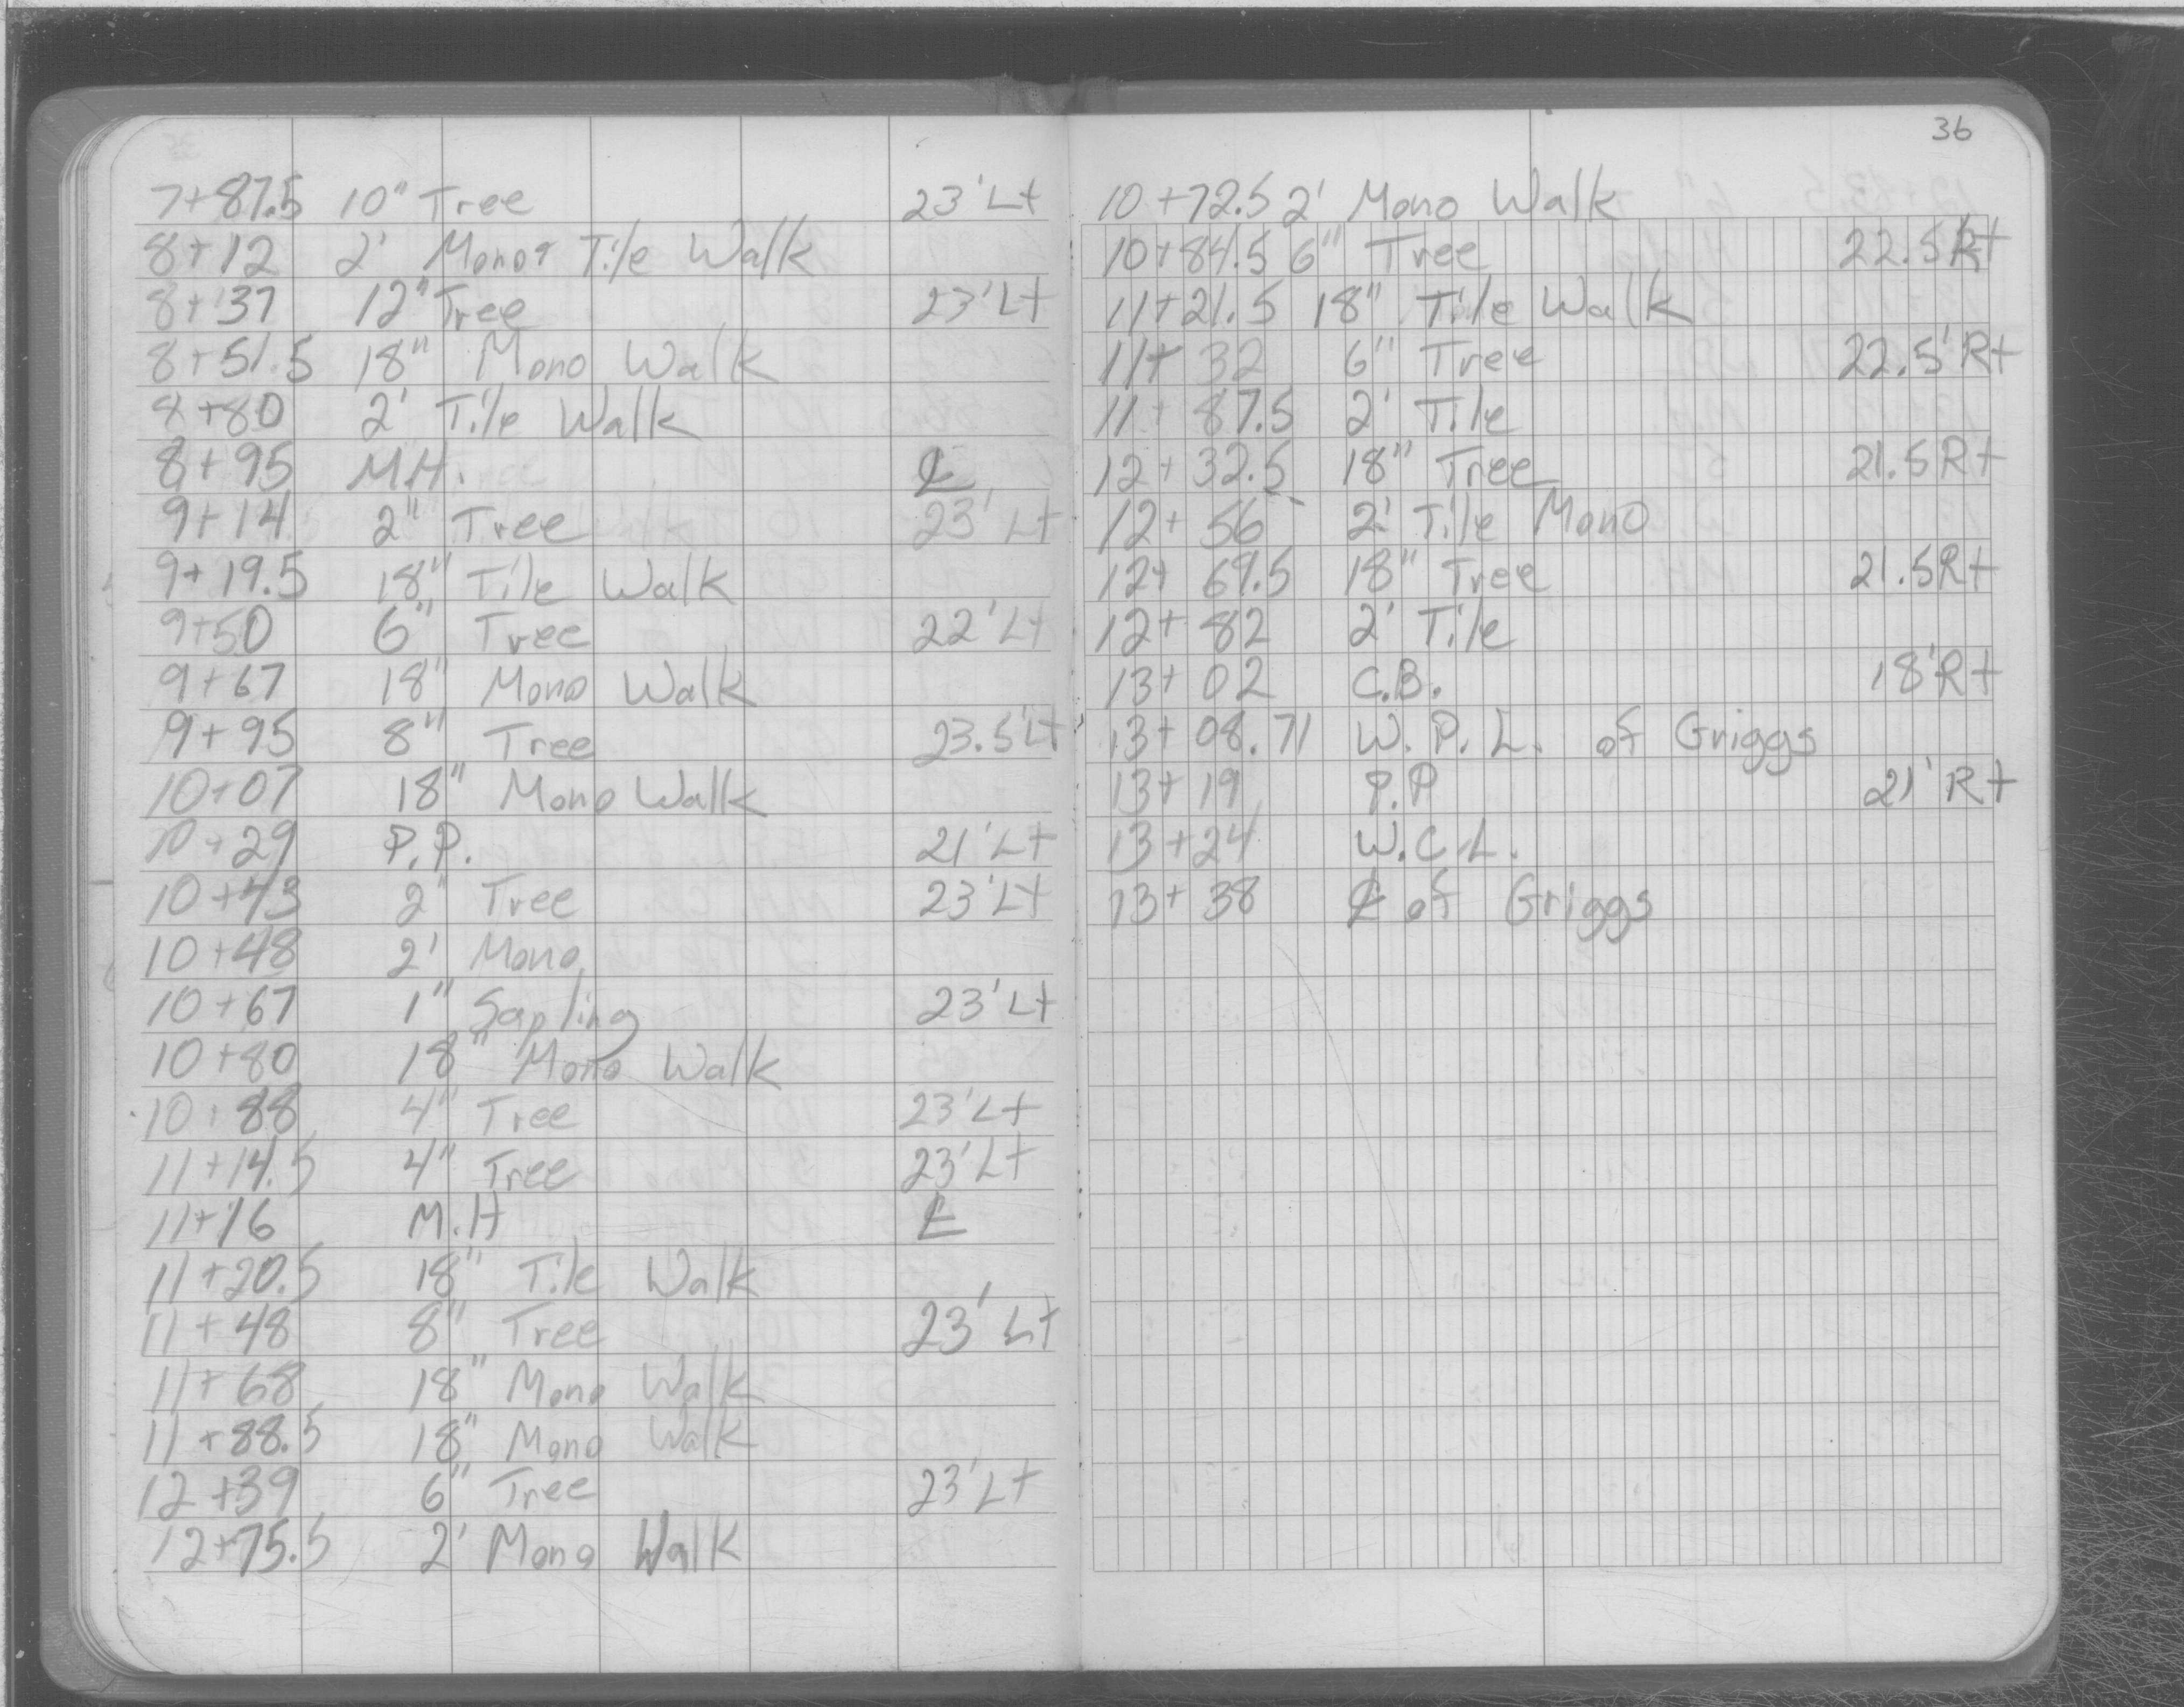 7+87.5 10" Tree 23' Lt
8+12 2' Mono + Tile Walk
8+37 12" Tree 23' Lt
8+51.5 18" Mono Walk
8+80 2' Tile Walk
8+95 M.H. ℄
9+14 2" Tree 23' Lt
9+19.5 18" Tile Walk
9+50 6" Tree 22' Lt
9+67 18" Mono Walk
9+95 8" Tree 23.5' Lt
10+07 18" Mono Walk
10+29 P.P. 21' Lt
10+43 2" Tree 23' Lt
10+48 2' Mono
10+67 1" Sapling 23' Lt
10+80 18" Mono Walk
10+88 4" Tree 23' Lt
11+14.5 4" Tree 23' Lt
11+16 M.H ℄
11+20.5 18" Tile Walk
11+48 8" Tree 23' Lt
11+68 18" Mono Walk
11+88.5 18" Mono Walk
12+39 6" Tree 23' Lt
12+75.5 2' Mono Walk
36
10+72.5 2' Mono Walk
10+84.5 6" Tree 22.5 Rt
11+21.5 18" Tile Walk
11+32 6" Tree 22.5' Rt
11+87.5 2' Tile
12+32.5 18" Tree 21.5 Rt
12+56 2' Tile Mono
12+69.5 18" Tree 21.5 Rt
12+82 2' Tile
13+02 C.B. 18' Rt
13+08.71 W.P.L. of Griggs
13+19 P.P 21' Rt
13+24 W.C.L.
13+38 ℄ of Griggs